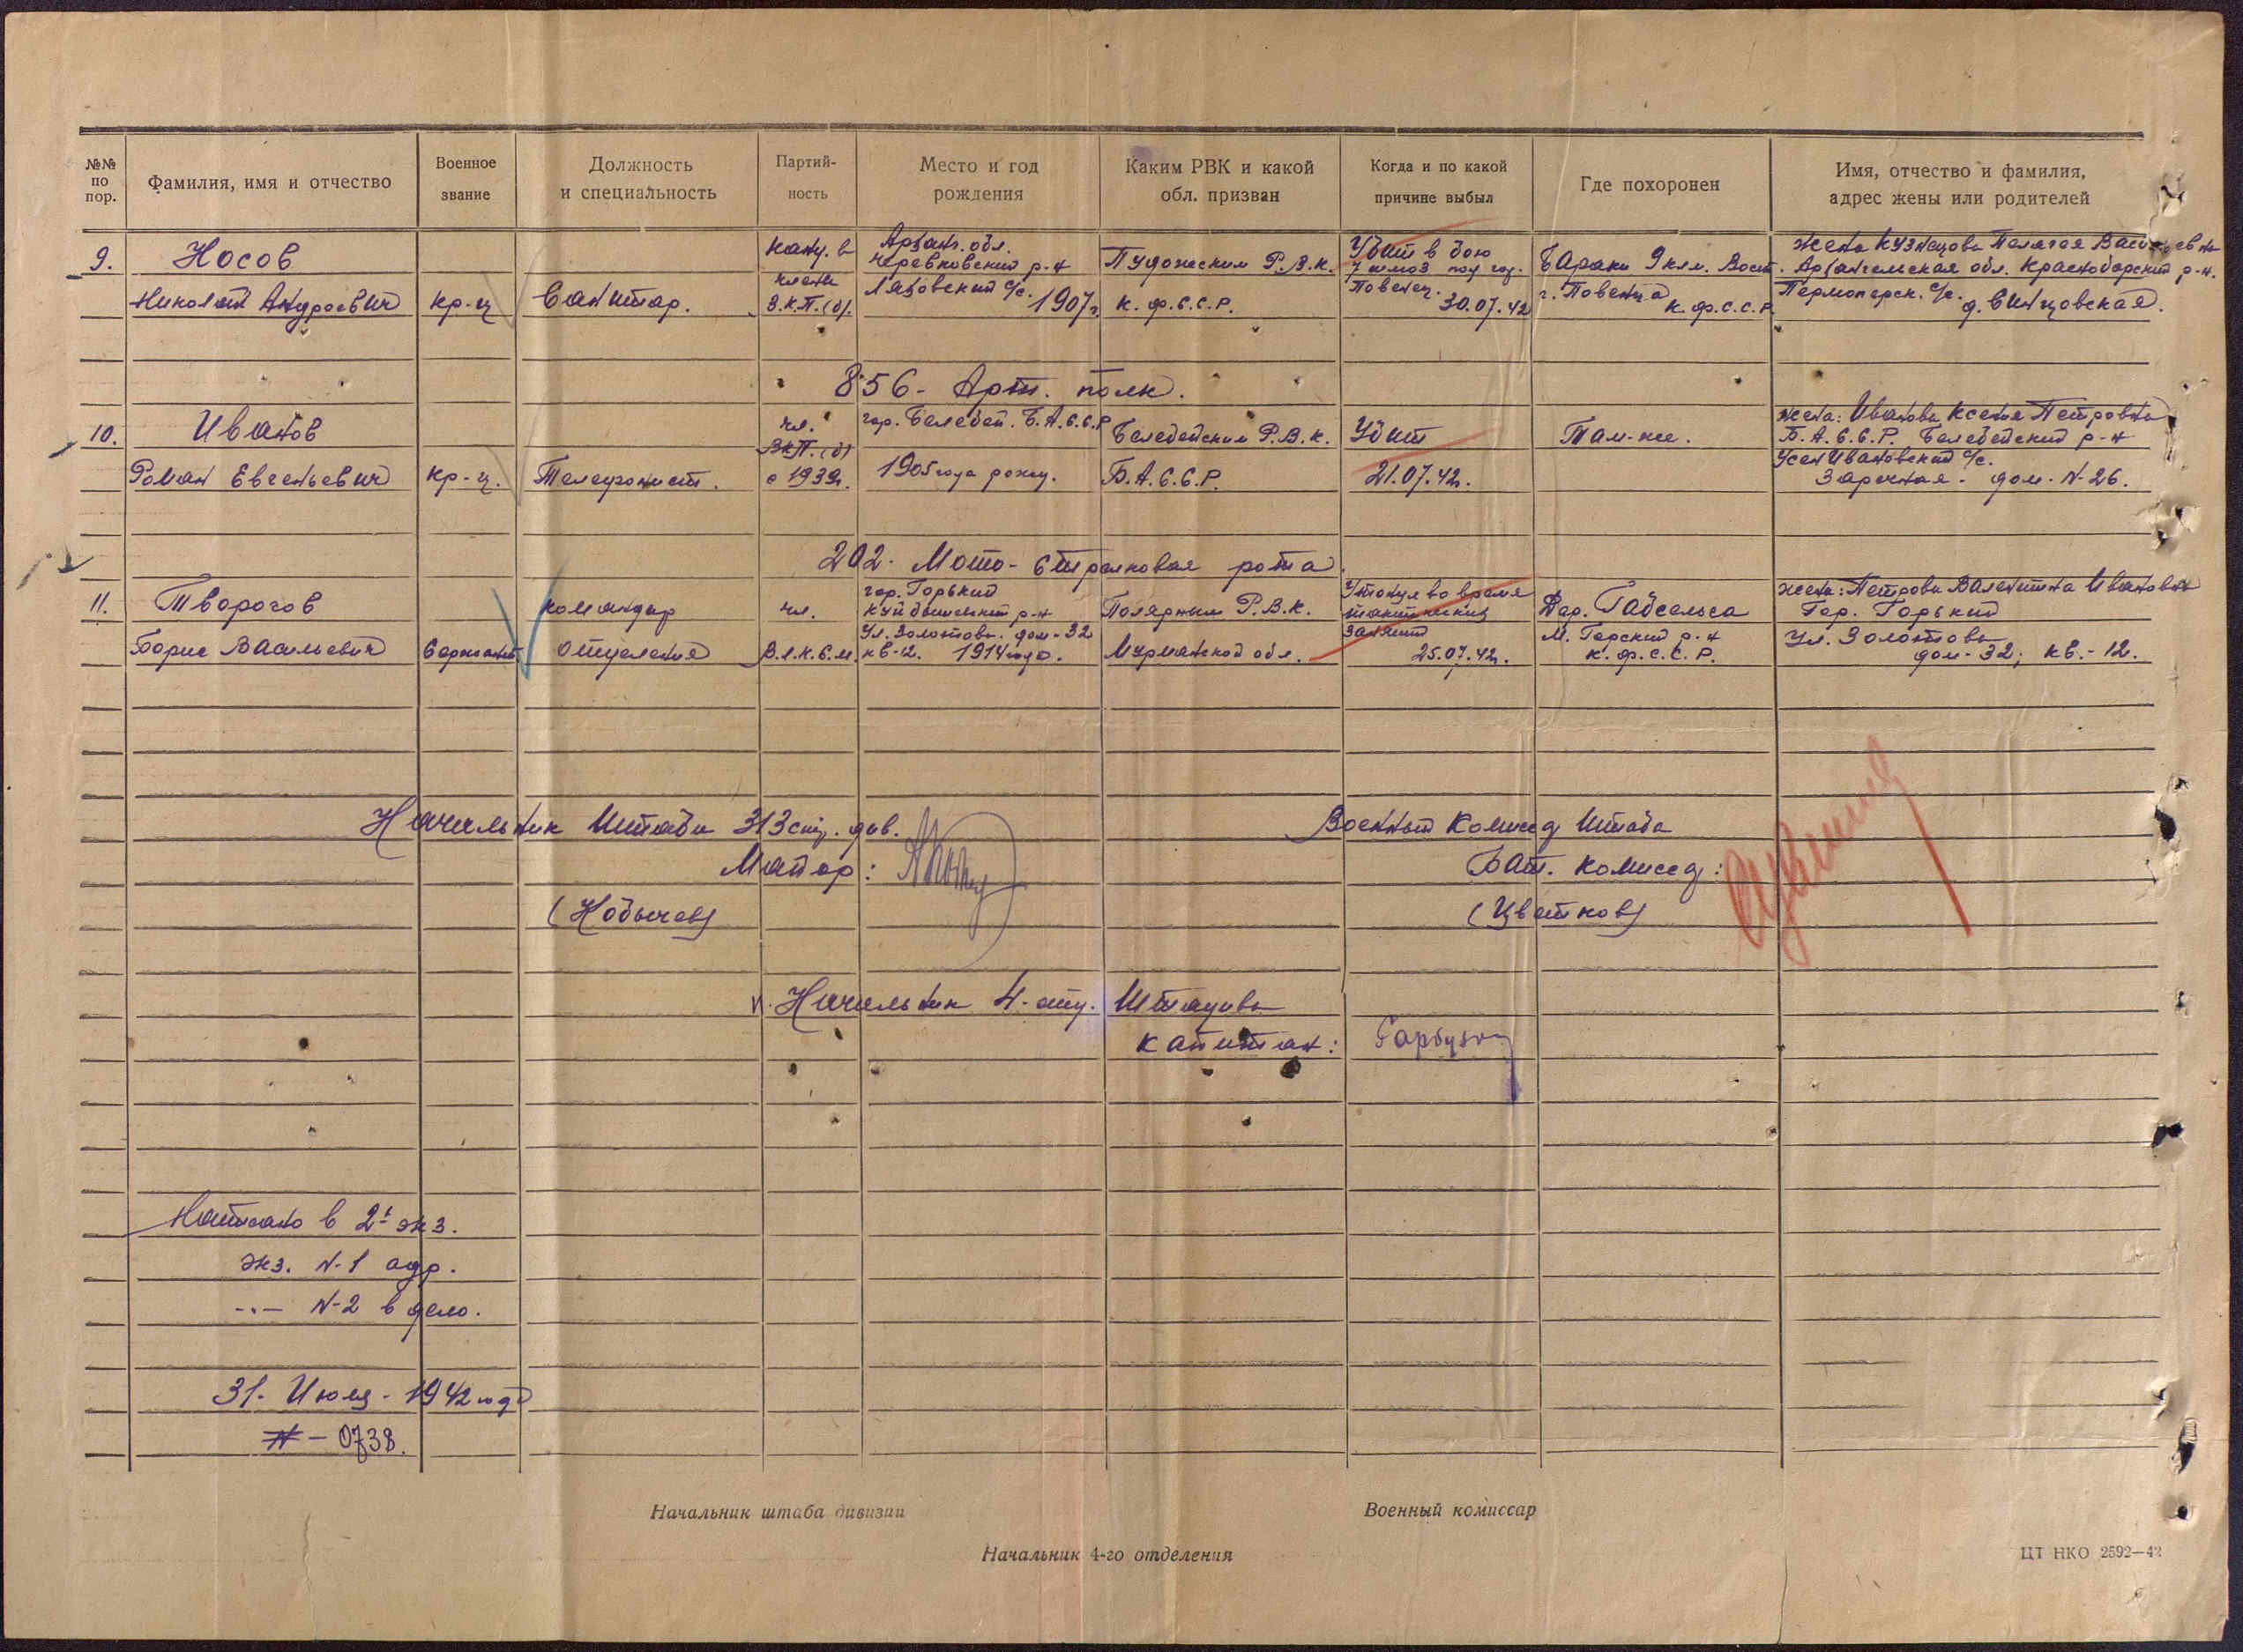 №№ по пор.
Фамилия, имя и отчество
Военное звание
Должность и специальность
Партий-ность
Место и год рождения
Каким РВК и какой обл. призван
Когда и по какой причине выбыл
Где похоронен
Имя, отчество и фамилия, адрес жены или родителей
9.
Носов
Николай Андреевич
кр-ц
Санитар.
канд. в
члены
В.К.П.(б).
Арханг. обл.
Черевковский р-н
с/с.
1907г.
Пудожским Р.В.К.
К.Ф.С.С.Р.
Убит в бою
под гор.
Повенец.
30.07.42
Бараки 9 клм. Вост.
г. Повенца
К.Ф.С.С.Р.
жена Кузнецова Пелагея Васильевна
Архангельская обл. Красноборский р-н.
Пермогорск. с/с.
д. Синцовская.
856 - Арт. полк.
10.
Иванов
Роман Евгеньевич
кр-ц.
Телефонист.
чл.
ВКП.(б)
с 1939г.
гор. Белебей. Б.А.С.С.Р
1905 года рожд.
Белебейским Р.В.К.
Б.А.С.С.Р.
Убит
21.07.42г.
Там-же.
жена: Иванова Ксения Петровна
Б.А.С.С.Р. Белебейский р-н
УсенИвановский с/с.
Заречная - дом - N-26.
202 - Мото-стрелковая рота.
11.
Творогов
Борис Васильевич
Сержант
командир
отделения
чл.
В.Л.К.С.М.
гор. Горький
Куйбышевский р-н
Ул. Золотова. дом-32
кв-12. 1914 года.
Полярным Р.В.К.
Мурманской обл.
Утонул во время
тактических
занятий
25.07.42г.
Дер. Габсельга
М. Горский р-н
К.Ф.С.С.Р.
жена: Петрова Валентина Ивановна
Гор. Горький
Ул. Золотова
дом-32; кв.-12.
Начальник Штаба 313 стр. див.
Майор:
Военный Комиссар Штаба
Бат. комиссар:
(Цветков)
Начальник 4-отд. Штадива
капитан:
Написано в 2х экз.
экз. N-1 адр.
-"- N-2 в дело.
31 - Июля - 1942 года
N - 0738.
Начальник штаба дивизии
Военный комиссар
Начальник 4-го отделения
ЦТ НКО 2592—42